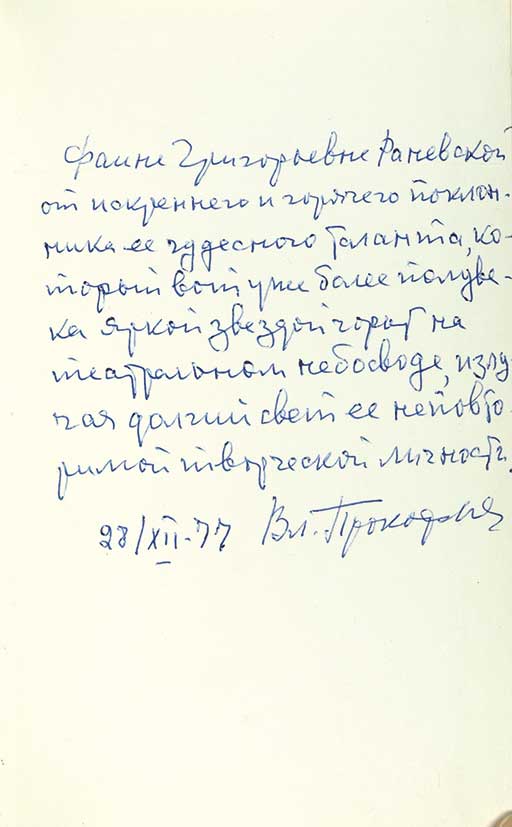 Фаине Григорьевне Раневской
от искреннего и горячего поклон-
ника ее чудесного таланта, ко-
торый вот уже более полуве-
ка яркой звездой горит на
театральном небосводе, излу-
чая долгий свет ее неповто-
римой творческой личности.
28/XII-77 Вл. Прокофьев